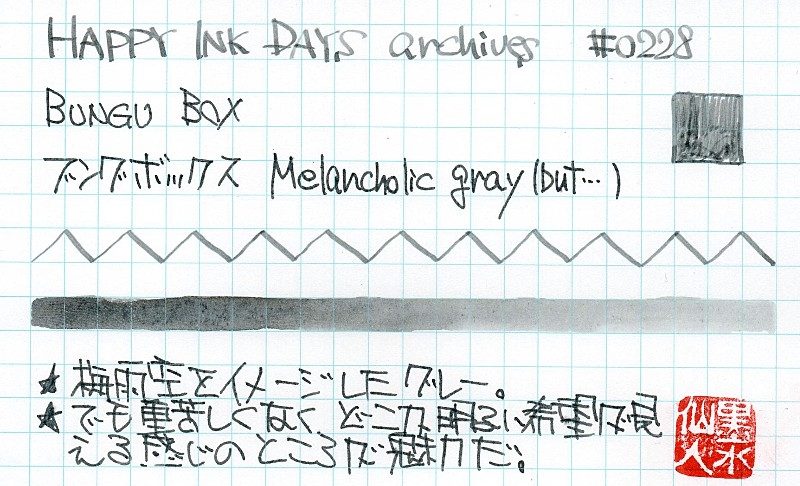 HAPPY INK DAYS archives #0228
BUNGU BOX
ブングボックス Melancholic gray (but…)
★ 梅雨空をイメージしたグレー。
★ でも重苦しくなく、どこか明るい希望が見
える感じのところが魅力だ。
墨水
仙人